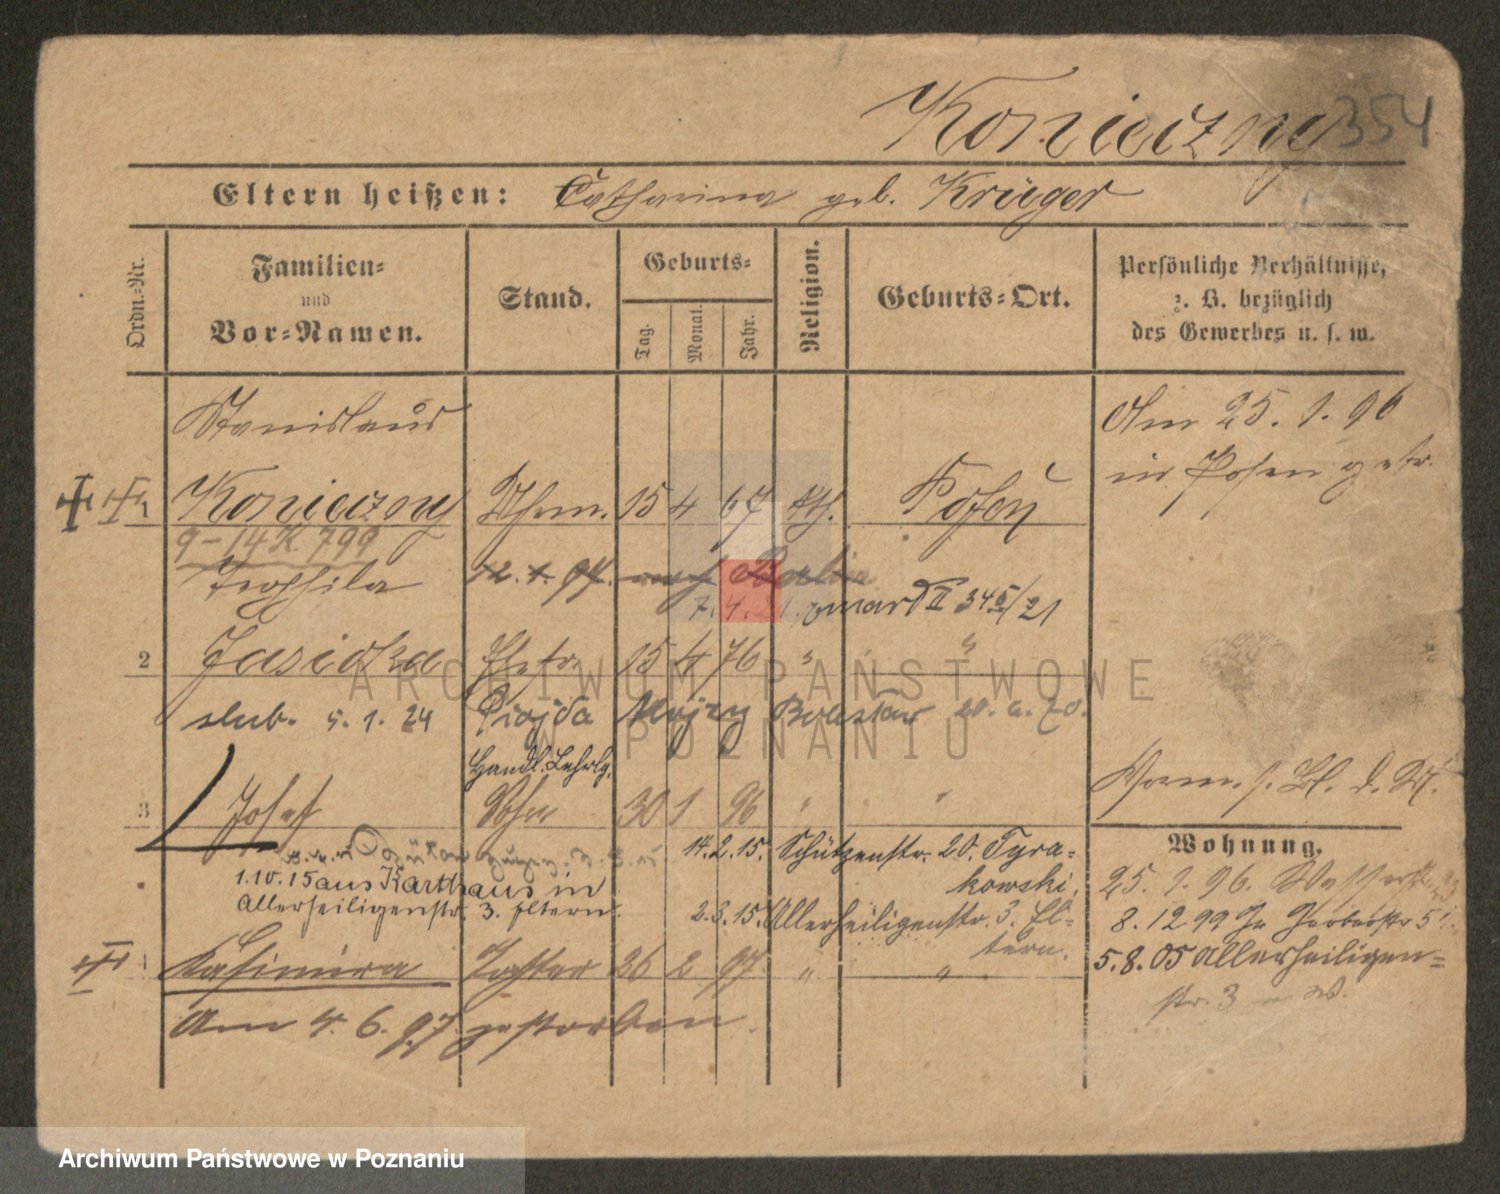 Konieczny 354
Eltern heißen: Catharina geb. Krüger
Ordn.-Nr.
Familien-
und
Vor-Namen.
Stand.
Geburts-
Tag.
Monat.
Jahr.
Religion.
Geburts-Ort.
Persönliche Verhältnisse,
z. B. bezüglich
des Gewerbes u. s. w.
Stanislaus
Am 25. 1. 96
in Posen getr.
1 Konieczny 15 4 67 kth. Posen
9-14 K 799
Teophila 12. 1. 94. nach Berlin
7. 4. 21. zmarł II 345/21
2 Jasicka Ehefr. 15 4 76 " "
slub. 5. 1. 24 Alojzy Bolesław
Handl. Lehrlg.
3 Josef Sohn 30 1 96 " "
Wohnung.
14. 2. 15. Schützenstr. 20. Tyra-
kowski.
1. 10. 15 aus Karthaus in
Allerheiligenstr. 3. Eltern.
2. 3. 15. Allerheiligenstr. 3. El-
tern.
25. 1. 96. Wasserstr.
8. 12. 99 Gerberstr 5
5. 8. 05 Allerheiligen-
str. 3
Kasimira Tochter 26 2 97 " "
Am 4. 6. 97 gestorben.
ARCHIWUM PAŃSTWOWE
W POZNANIU
Archiwum Państwowe w Poznaniu